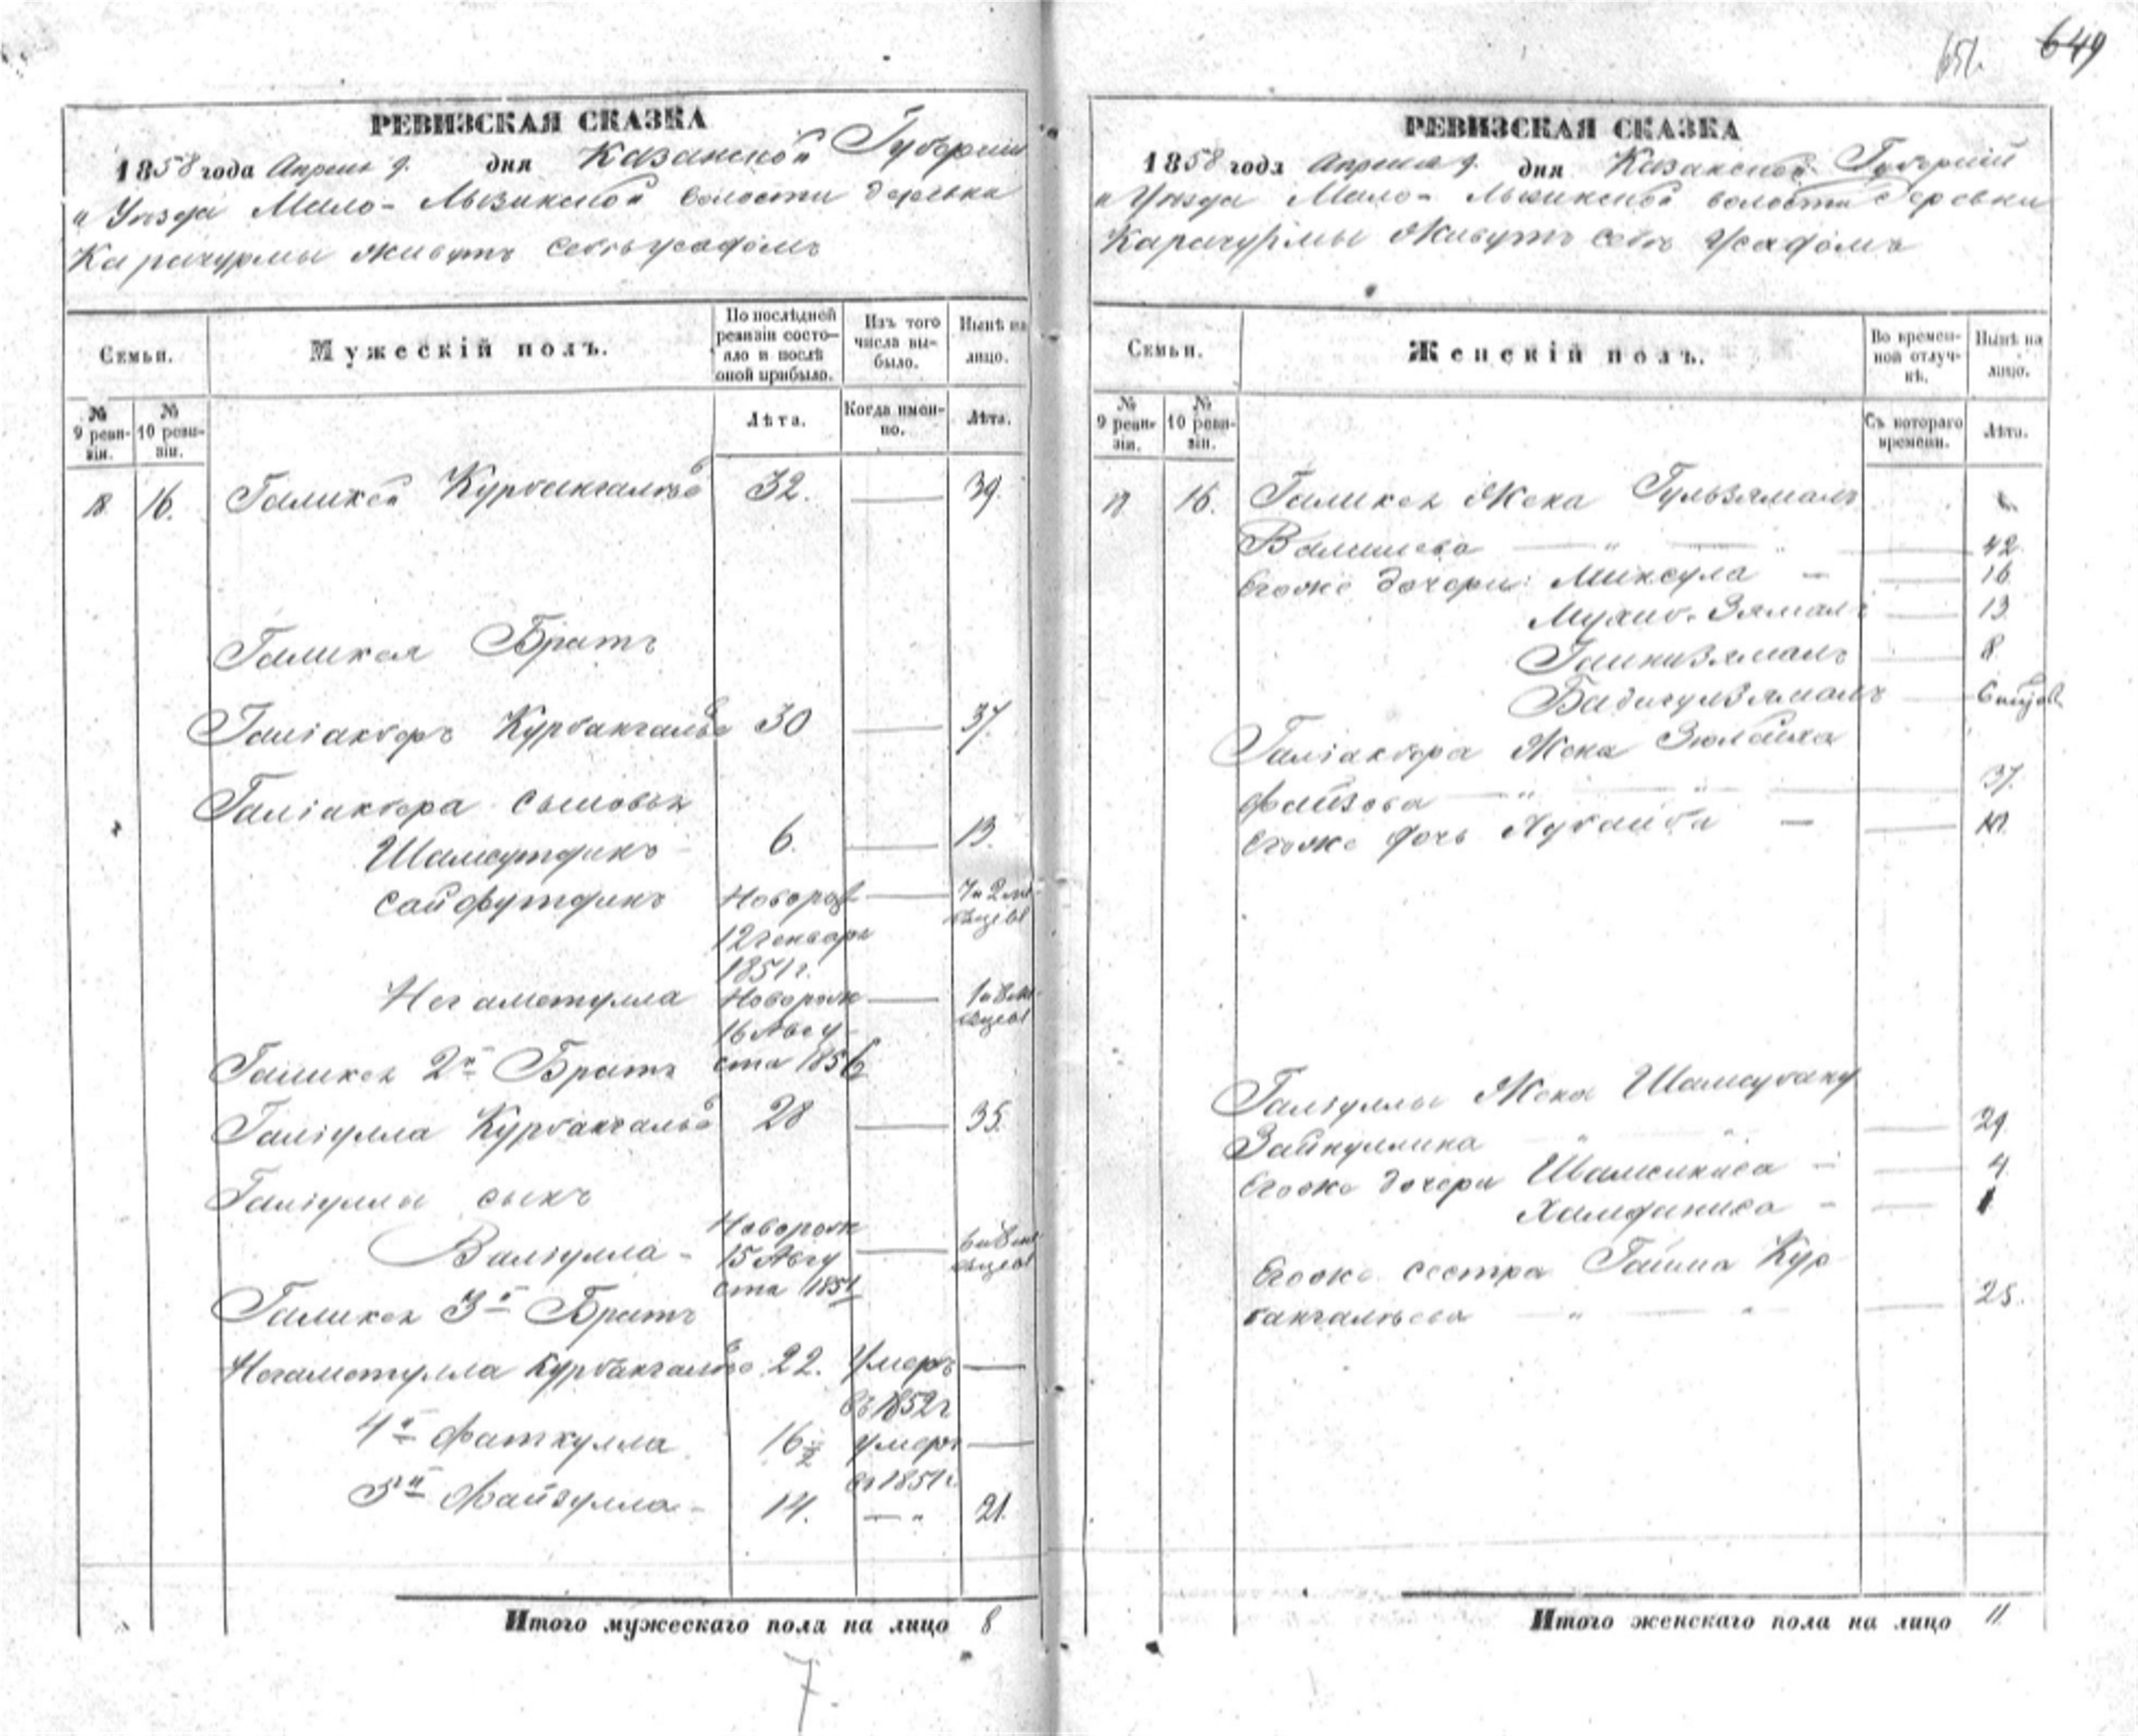 649
РЕВИЗСКАЯ СКАЗКА
1858 года Апреля 9. дня Казанской Губернии
и Уезда Мало- волости деревни
Карачурмы живутъ себѣ
Семьи.
Мужескій полъ.
По послѣдней ревизіи состояло и послѣ оной прибыло.
Изъ того числа выбыло.
Нынѣ на лицо.
№ 9 ревизіи.
№ 10 ревизіи.
Лѣта.
Когда именно.
Лѣта.
18 16. Галикей Курбангалѣевъ 32. — 39.
Галикея Братъ
Галіакберъ Курбангалѣевъ 30 — 37.
Галіакбера сыновья
Шамсутдинъ 6. — 13.
Сайфутдинъ Новорож — 7 и 2 мѣсяцевъ
12 генваря
1851 г.
Негаметулла Новорож — 1 и 8 мѣсяцевъ
16 Авгу-
ста 1856
Галикея 2й Братъ
Галіулла Курбангалѣевъ 28 — 35.
Галіуллы сынъ
Валіулла - Новорож — 6 и 8 мѣсяцевъ
15 Авгу
ста 1851
Галикея 3й Братъ
Негаметулла Курбангалѣевъ 22. Умеръ —
въ 1852 г
4й Фаткулла 16½ умеръ —
въ 1851 г.
5й Файзулла - 14. — " 21.
Итого мужескаго пола на лицо 8
7.
РЕВИЗСКАЯ СКАЗКА
1858 года Апреля 9. дня Казанской Губерніи
и Уезда Мало- волости деревни
Карачурмы живутъ себѣ
Семьи.
Женскій полъ.
Во временной отлучкѣ.
Нынѣ на лицо.
№ 9 ревизіи.
№ 10 ревизіи.
Съ котораго времени.
Лѣта.
18 16. Галикея Жена Гульзямалъ
Валишева — " — " — 42
Егоже дочери: Миксула — — 16
Мухиб. Зямалъ — 13
Гайнизямалъ — 8
Бадигулзямалъ — 6 мѣсяц
Галіакбера Жена Зюлейха
Файзова — " — " — 37.
Егоже дочь Хубайба — —
Галіуллы Жена Шамсубану
Зайнуллина " " — 29.
Егоже дочери Шамсиниса — — 4.
Хамдиниса — — 1
Егоже сестра Галима Кур
бангалѣева — " — " — 25.
Итого женскаго пола на лицо 11